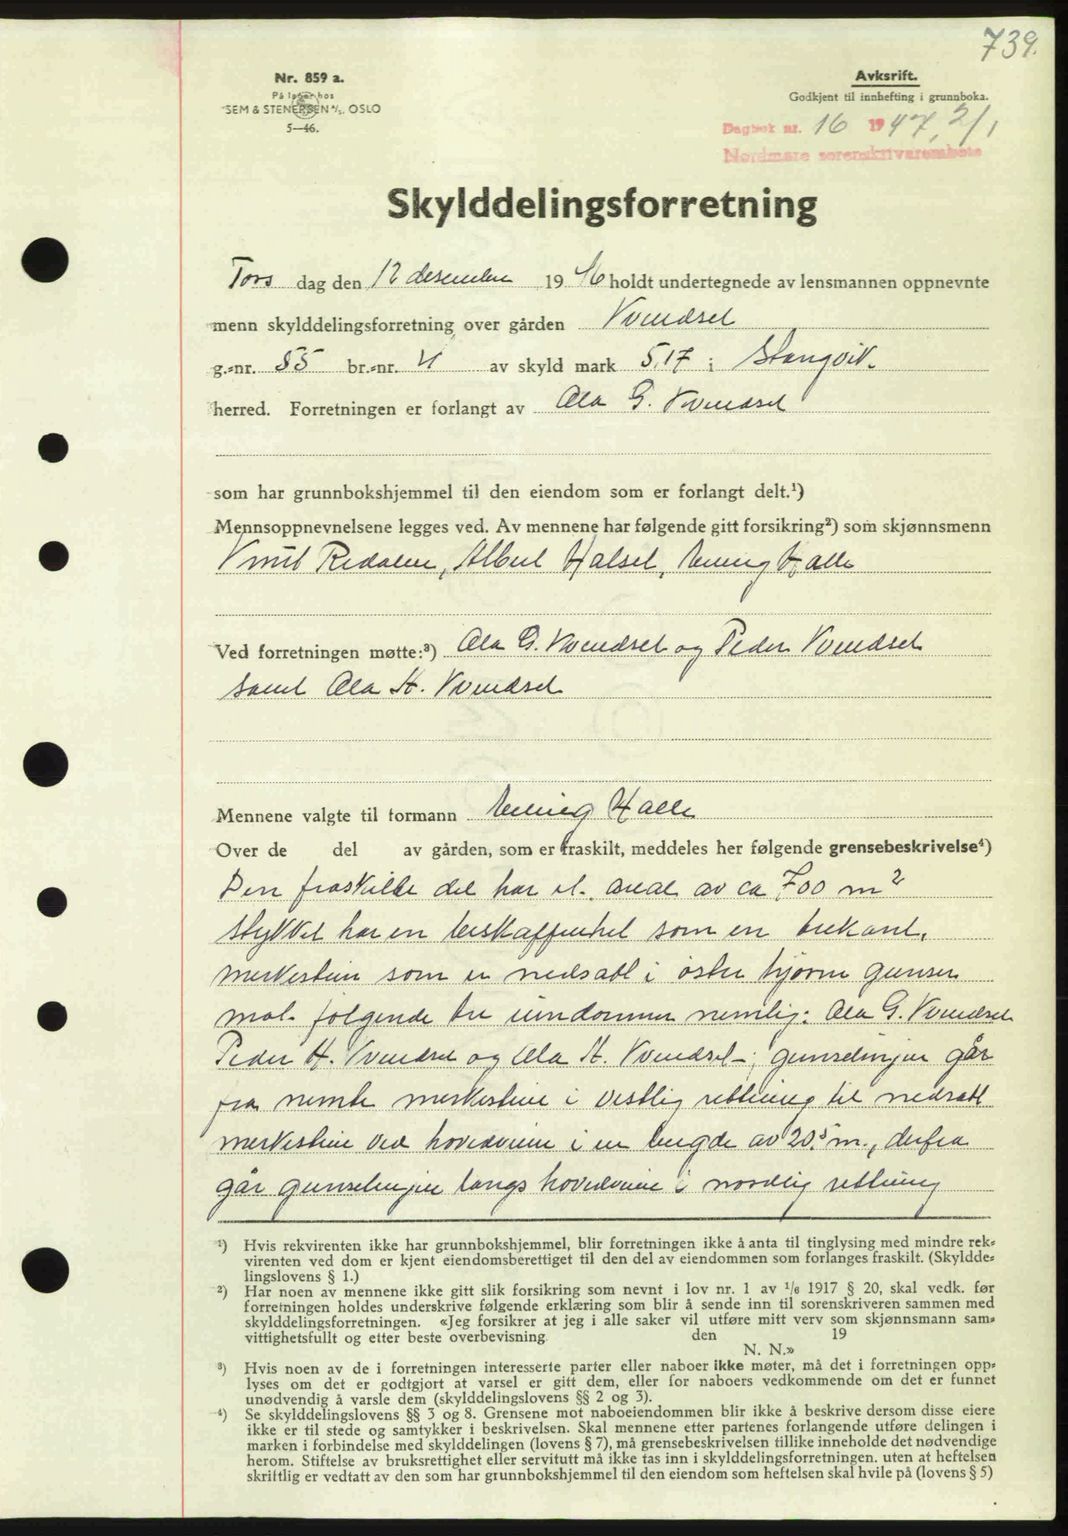 739.
Nr. 859 a.
På lager hos
SEM & STENERSEN A/S. OSLO
5—46.
Avksrift.
Godkjent til innhefting i grunnboka.
Dagbok nr. 16 1947, 2/1
Nordmøre sorenskriverembete
Skylddelingsforretning
Tors dag den 12 desember 1946 holdt undertegnede av lensmannen oppnevnte
menn skylddelingsforretning over gården Kvendset
g.-nr. 55 br.-nr. 4 av skyld mark 5,17 i Stangvik.
herred. Forretningen er forlangt av Ola G. Kvendset
som har grunnbokshjemmel til den eiendom som er forlangt delt.¹)
Mennsoppnevnelsene legges ved. Av mennene har følgende gitt forsikring²) som skjønnsmenn
Knut Redalen, Albert Halset, Halle
Ved forretningen møtte:³) Ola G. Kvendset og Peder Kvendset
samt Ola H. Kvendset
Mennene valgte til formann Halle
Over de del av gården, som er fraskilt, meddeles her følgende grensebeskrivelse⁴)
Den fraskilte del har et areal av ca 700 m²
stykket har en beskaffenhet som en trekant,
merkestein som er nedsatt i østre hjørne grenser
mot følgende tre eiendommer nemlig: Ola G. Kvendset
Peder H. Kvendset og Ola H. Kvendset; grenselinjen går
fra nevnte merkestein i vestlig retning til nedsatt
merkestein ved hovedveien i en lengde av 20.5 m., derfra
går grenselinjen langs hovedveien i nordlig retning
¹) Hvis rekvirenten ikke har grunnbokshjemmel, blir forretningen ikke å anta til tinglysing med mindre rek-
virenten ved dom er kjent eiendomsberettiget til den del av eiendommen som forlanges fraskilt. (Skyldde-
lingslovens § 1.)
²) Har noen av mennene ikke gitt slik forsikring som nevnt i lov nr. 1 av 1/6 1917 § 20, skal vedk. før
forretningen holdes underskrive følgende erklæring som blir å sende inn til sorenskriveren sammen med
skylddelingsforretningen. «Jeg forsikrer at jeg i alle saker vil utføre mitt verv som skjønnsmann sam-
vittighetsfullt og etter beste overbevisning. den 19
N. N.»
³) Hvis noen av de i forretningen interesserte parter eller naboer ikke møter, må det i forretningen opp-
lyses om det er godtgjort at varsel er gitt dem, eller for naboers vedkommende om det er funnet
unødvendig å varsle dem (skylddelingslovens §§ 2 og 3).
⁴) Se skylddelingslovens §§ 3 og 8. Grensene mot naboeiendommen blir ikke å beskrive dersom disse eiere
ikke er til stede og samtykker i beskrivelsen. Skal mennene etter partenes forlangende utføre delingen i
marken i forbindelse med skylddelingen (lovens § 7), må grensebeskrivelsen tillike inneholde det nødvendige
herom. Stiftelse av bruksrettighet eller servitutt må ikke tas inn i skylddelingsforretningen. uten at heftelsen
skriftlig er vedtatt av den som har grunnbokshjemmel til den eiendom som heftelsen skal hvile på (lovens § 5)